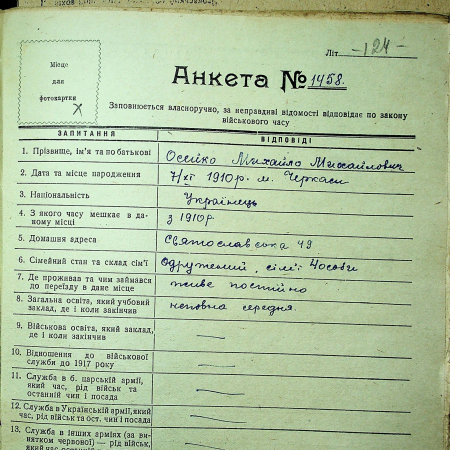 Літ —124—
Місце
для
фотокартки
Анкета № 1458.
Заповнюється власноручно, за неправдиві відомості відповідає по закону
військового часу
ЗАПИТАННЯ ВІДПОВІДІ
1. Прізвище, ім'я та по батькові Осейко Михайло Михайлович
2. Дата та місце народження 7/XI 1910р. м. Черкаси
3. Національність Українець
4. З якого часу мешкає в да-
ному місці з 1910р
5. Домашня адреса Святославська 49
6. Сімейний стан та склад сім'ї Одружений, сім'ї 4 особи
7. Де проживав та чим займався
до переїзду в дане місце живе постійно
8. Загальна освіта, який учбовий
заклад, де і коли закінчив неповна середня.
9. Військова освіта, який заклад,
де і коли закінчив —
10. Відношення до військової
служби до 1917 року —
11. Служба в б. царській армії,
який час, рід військ та
останній чин і посада —
12. Служба в Українській армії, який
час, рід військ та ост. чин і посада —
13. Служба в інших арміях (за ви-
нятком червоної) — рід військ,